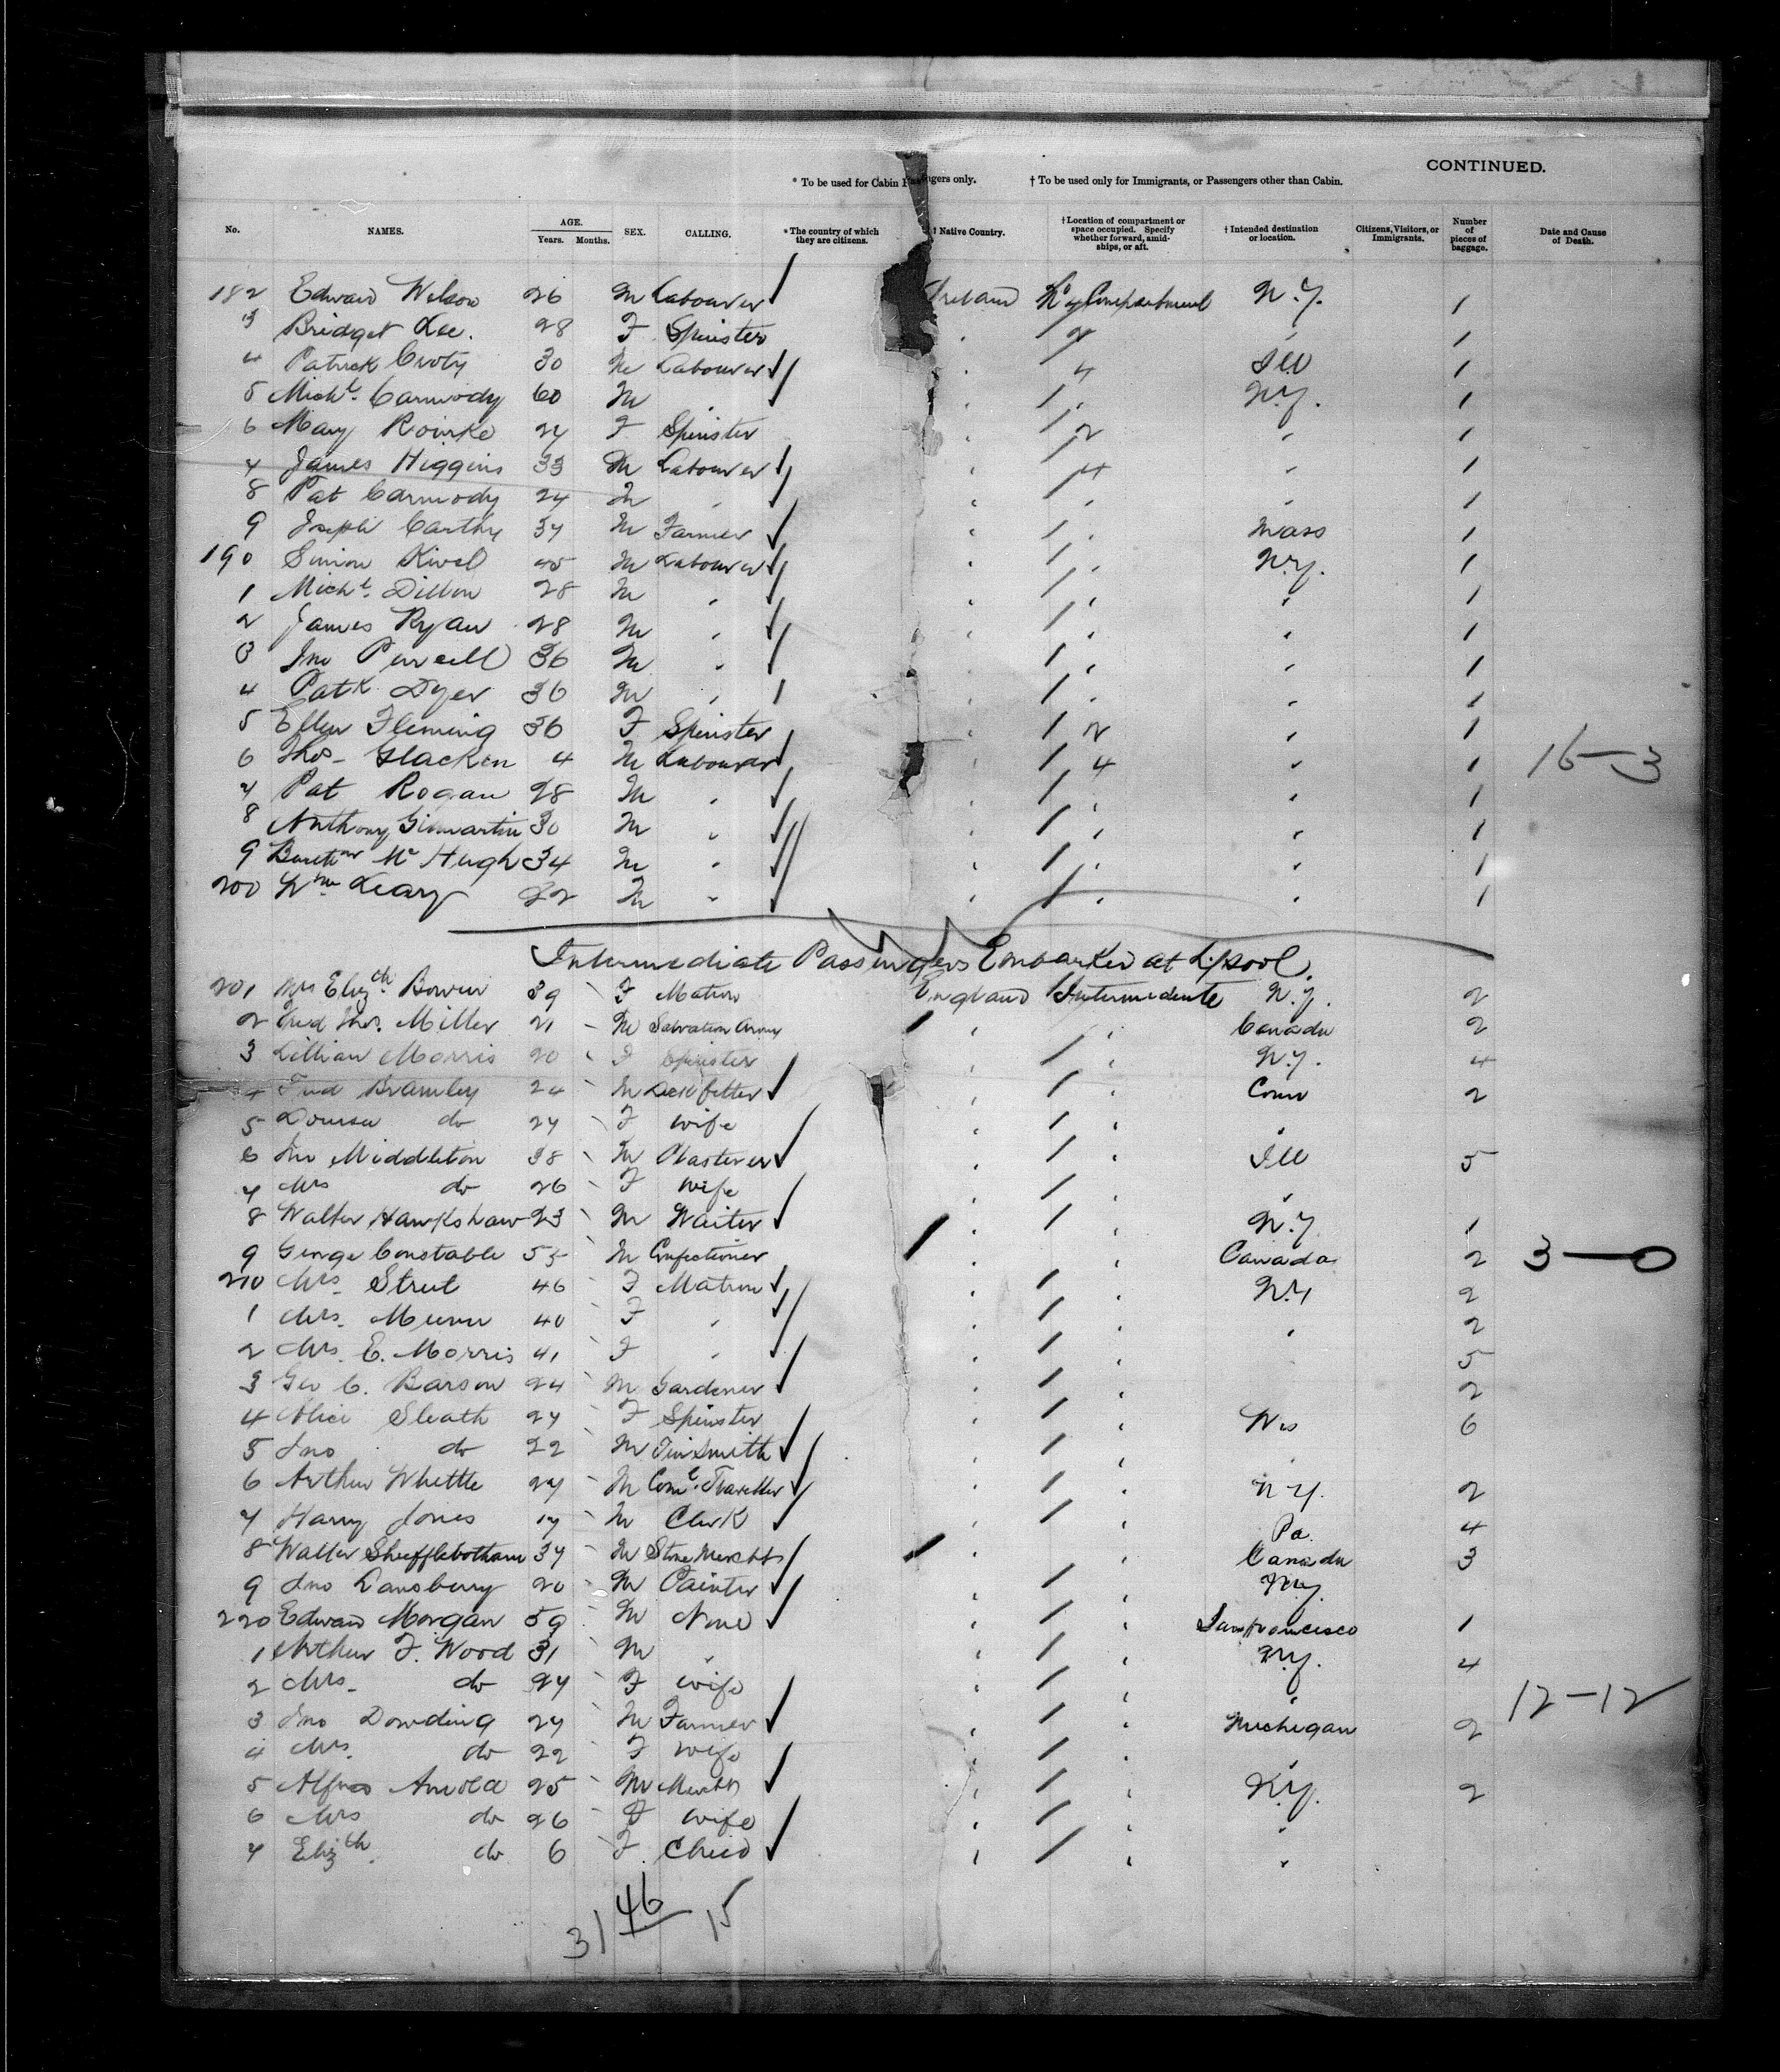 CONTINUED.
* To be used for Cabin Passengers only. † To be used only for Immigrants, or Passengers other than Cabin.
No. NAMES. AGE. Years. Months. SEX. CALLING. * The country of which they are citizens. † Native Country. † Location of compartment or space occupied. Specify whether forward, amidships, or aft. † Intended destination or location. Citizens, Visitors, or Immigrants. Number of pieces of baggage. Date and Cause of Death.
182 Edward Wilson 26 M Labourer Ireland Compartment N.Y. 1
3 Bridget Lee. 28 F Spinster " 2 " 1
4 Patrick Croty 30 M Labourer " 4 Ill 1
5 Michl. Carmody 60 M " " " N.Y. 1
6 Mary Rourke 27 F Spinster " 2 " 1
7 James Higgins 33 M Labourer " 4 " 1
8 Pat Carmody 24 M " " " " 1
9 Joseph Carthy 37 M Farmer " " Mass 1
190 Simon 45 M Labourer " " N.Y. 1
1 Michl. Dillon 28 M " " " " 1
2 James Ryan 28 M " " " " 1
3 Jno Purcell 36 M " " " " 1
4 Patk. Dyer 36 M " " " " 1
5 Ellen Fleming 36 F Spinster " 2 " 1
6 Thos Glacken 4 M Labourer " 4 " 1 16-3
7 Pat Rogan 28 M " " " " 1
8 Anthony Gilmartin 30 M " " " " 1
9 McHugh 34 M " " " " 1
200 Wm Leary 22 M " " " " 1
Intermediate Passengers Embarked at L'pool.
201 Mrs Elizth Bowen 39 F Matron England Intermediate N.Y. 2
2 Fred Thos. Miller 21 M Salvation Army " " Canada 2
3 Lillian Morris 20 F Spinster " " N.Y. 4
4 Fred Bramley 24 M " " Conn 2
5 Louisa do 27 F wife " " "
6 Jno Middleton 38 M Plasterer " " Ill 5
7 Mrs do 26 F wife " " "
8 Walter Hawkshaw 23 M Waiter " " N.Y. 1
9 George Constable 55 M Confectioner " " Canada 2 3-0
210 Mrs. Street 46 F Matron " " N.Y 2
1 Mrs. Munn 40 F " " " " 2
2 Mrs. E. Morris 41 F " " " 5
3 Geo C. Barson 24 M Gardener " " 2
4 Alice Sleath 27 F Spinster " " Wis 6
5 Jno do 22 M Tinsmith " " "
6 Arthur Whittle 27 M Coml. Traveller " " N.Y. 2
7 Harry Jones 17 M Clerk " " Pa. 4
8 Walter Shufflebotham 37 M Stone Mercht " " Canada 3
9 Jno Dansberry 20 M Painter " " N.Y.
220 Edward Morgan 59 M None " " San Francisco 1
1 Arthur F. Wood 31 M " " " N.Y. 4
2 Mrs. do 27 F wife " " "
3 Jno Dowding 27 M Farmer " " Michigan 2 12-12
4 Mrs. do 22 F wife " " "
5 Alfred Arnold 25 M Mercht " " N.Y. 2
6 Mrs do 26 F wife " " "
7 Elizth. do 6 F Child " " "
46
31 15